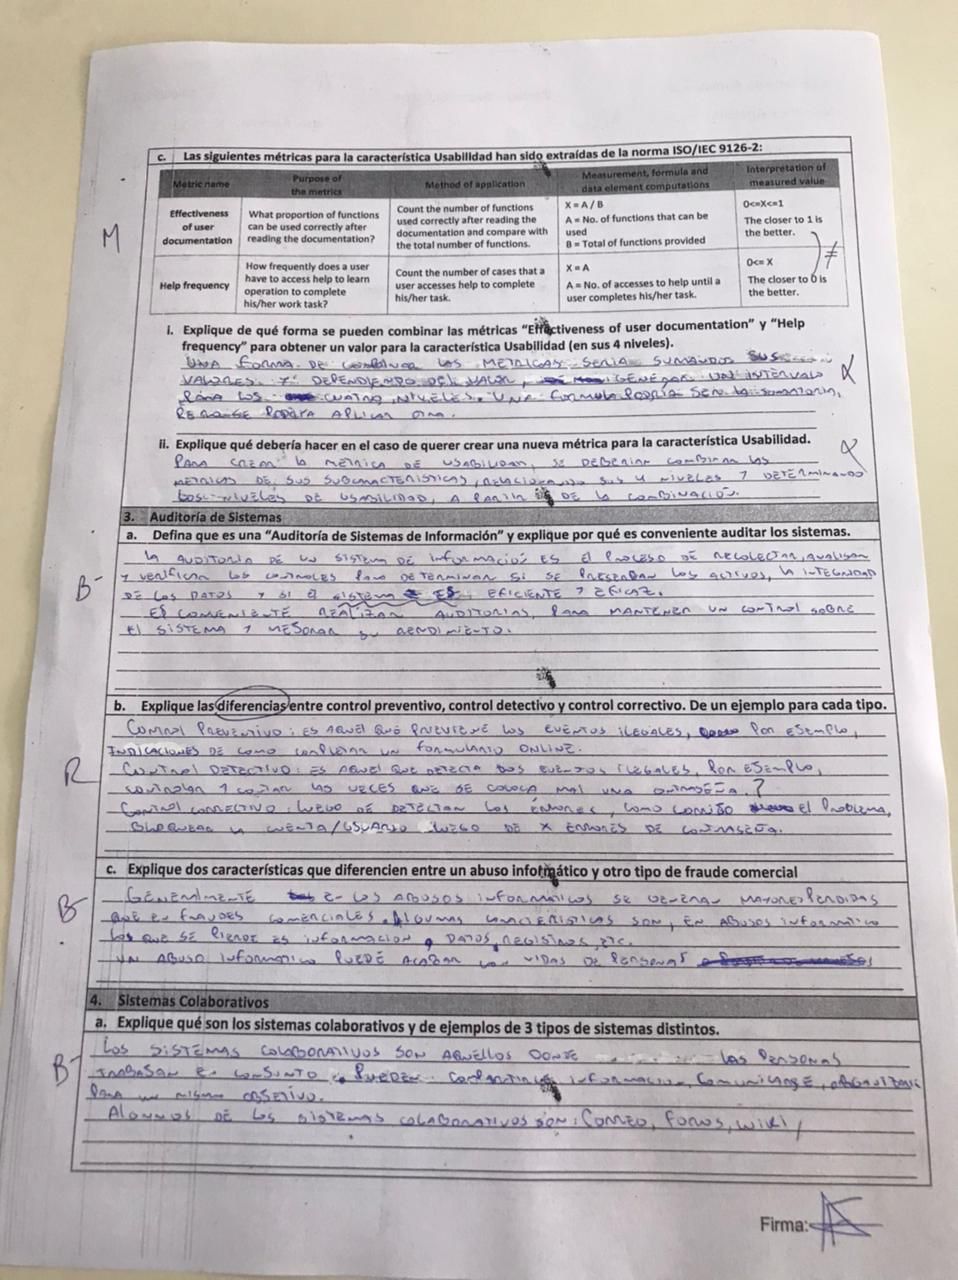 c. Las siguientes métricas para la característica Usabilidad han sido extraídas de la norma ISO/IEC 9126-2:
Metric name
Purpose of the metrics
Method of application
Measurement, formula and data element computations
Interpretation of measured value
M
Effectiveness of user documentation
What proportion of functions can be used correctly after reading the documentation?
Count the number of functions used correctly after reading the documentation and compare with the total number of functions.
X = A / B
A = No. of functions that can be used
B = Total of functions provided
0<=X<=1
The closer to 1 is the better.
≠
Help frequency
How frequently does a user have to access help to learn operation to complete his/her work task?
Count the number of cases that a user accesses help to complete his/her task.
X = A
A = No. of accesses to help until a user completes his/her task.
0<= X
The closer to 0 is the better.
i. Explique de qué forma se pueden combinar las métricas "Effectiveness of user documentation" y "Help
frequency" para obtener un valor para la característica Usabilidad (en sus 4 niveles).
UNA FORMA DE COMBINAR LAS METRICAS SERIA SUMANDOS SUS
VALORES Y DEPENDIENDO DEL VALOR, GENERAR UN INTERVALO
PARA LOS CUATRO NIVELES. UNA FORMULA PODRIA SER LA SUMATORIA,
PERO SE PODRIA APLICAR OTRA.
ii. Explique qué debería hacer en el caso de querer crear una nueva métrica para la característica Usabilidad.
PARA CREAR LA METRICA DE USABILIDAD, SE DEBERIAN COMBINAR LAS
METRICAS DE SUS SUBCARACTERISTICAS, RELACIONANDO SUS 4 NIVELES Y DETERMINANDO
LOS NIVELES DE USABILIDAD, A PARTIR DE LA COMBINACIÓN.
3. Auditoría de Sistemas
a. Defina que es una "Auditoría de Sistemas de Información" y explique por qué es conveniente auditar los sistemas.
B-
LA AUDITORIA DE UN SISTEMA DE INFORMACIÓN ES EL PROCESO DE RECOLECTAR, ANALISAR
Y VERIFICAR LOS CONTROLES PARA DETERMINAR SI SE PRESERVAN LOS ACTIVOS, LA INTEGRIDAD
DE LOS DATOS Y SI EL SISTEMA ES EFICIENTE Y EFICAZ.
ES CONVENIENTE REALIZAR AUDITORIAS, PARA MANTENER UN CONTROL SOBRE
EL SISTEMA Y MEJORAR SU RENDIMIENTO.
b. Explique las diferencias entre control preventivo, control detectivo y control correctivo. De un ejemplo para cada tipo.
R
CONTROL PREVENTIVO: ES AQUEL QUE PREVIENE LOS EVENTOS ILEGALES, POR EJEMPLO,
INDICACIONES DE COMO COMPLETAR UN FORMULARIO ONLINE.
CONTROL DETECTIVO: ES AQUEL QUE DETECTA LOS EVENTOS ILEGALES, POR EJEMPLO,
CONTROLAR Y CONTAR LAS VECES QUE SE COLOCA MAL UNA CONTRASEÑA. ?
CONTROL CORRECTIVO: LUEGO DE DETECTAR LOS ERRORES, COMO CORRIJO EL PROBLEMA,
BLOQUEAR LA CUENTA/USUARIO LUEGO DE X ERRORES DE CONTRASEÑA.
c. Explique dos características que diferencien entre un abuso informático y otro tipo de fraude comercial
B-
GENERALMENTE EN LOS ABUSOS INFORMATICOS SE GENERAN MAYORES PERDIDAS
QUE EN FRAUDES COMERCIALES. ALGUNAS CARACTERISTICAS SON, EN ABUSOS INFORMATICO
LOS QUE SE PIERDE ES INFORMACION O DATOS, REGISTROS, ETC.
UN ABUSO INFORMATICO PUEDE ACABAR CON VIDAS DE PERSONAS
4. Sistemas Colaborativos
a. Explique qué son los sistemas colaborativos y de ejemplos de 3 tipos de sistemas distintos.
B-
LOS SISTEMAS COLABORATIVOS SON AQUELLOS DONDE LAS PERSONAS
TRABAJAN EN CONJUNTO PUEDEN COMPARTIR INFORMACION, COMUNICARSE, ORGANIZARSE
PARA UN MISMO OBJETIVO.
ALGUNOS DE LOS SISTEMAS COLABORATIVOS SON: CORREO, FOROS, WIKI,
Firma: